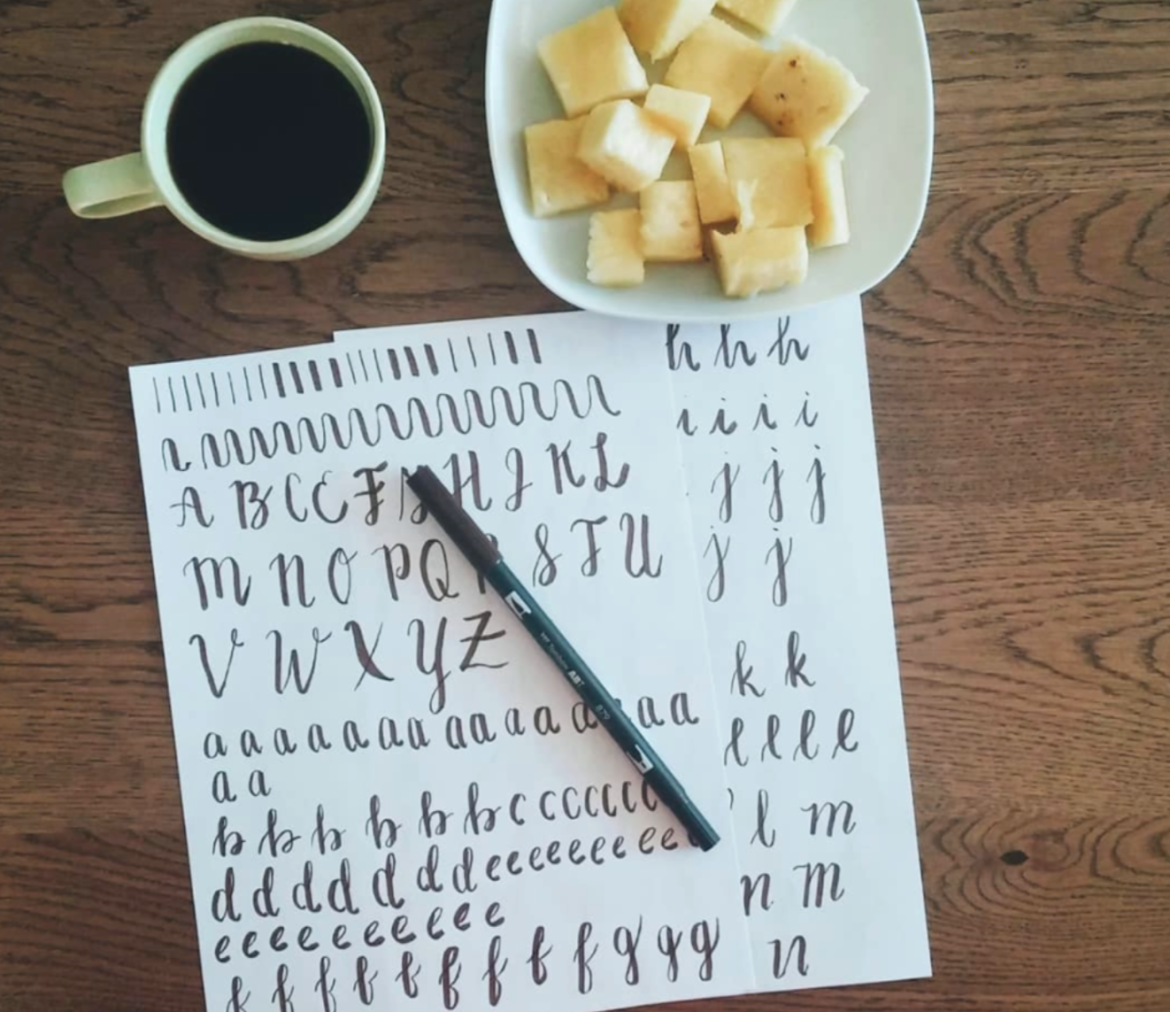 A B C C F H J K L
M N O P Q R S T U
V W X Y Z
a a a a a a a a a a a a a a a
a a
b b b b b b c c c c c c c
d d d d d d d e e e e e e e e e
e e e e e e e e e e
f f f f f f f f f g g g
ABT
879
h h h
i i i i
j j j
j j
k k
l l l l
l m
n m
n